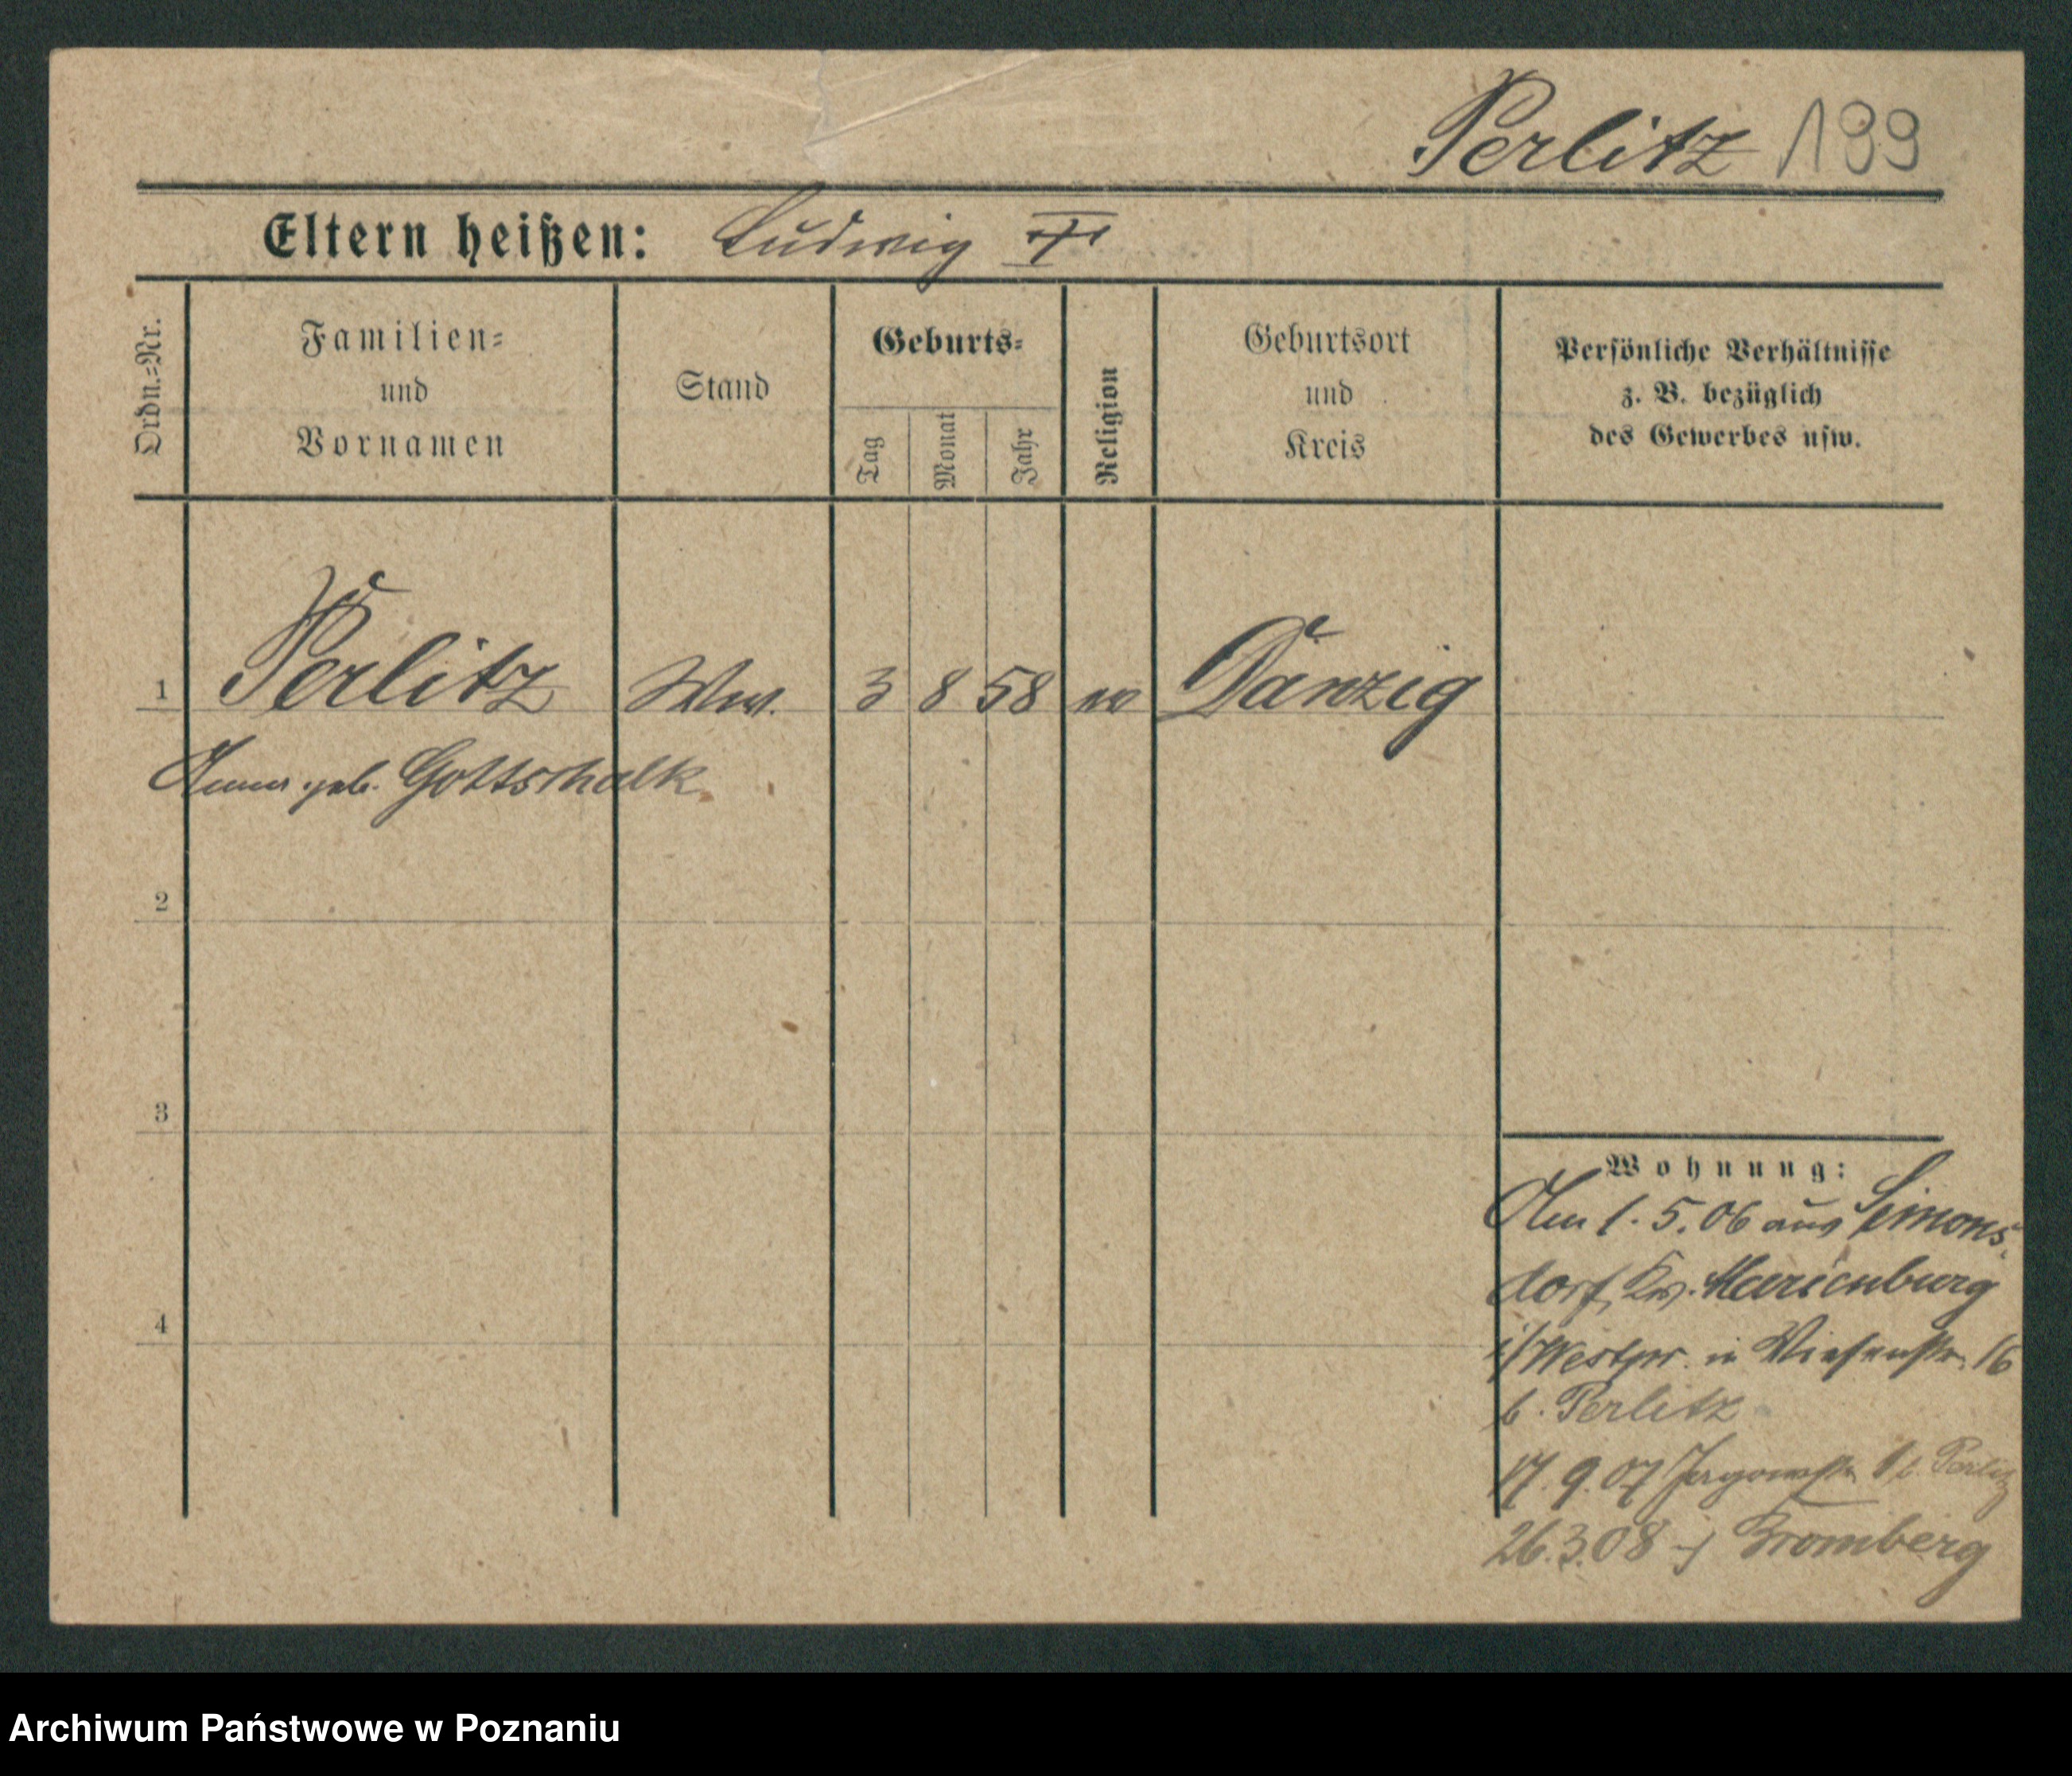 Perlitz 199
Eltern heißen: Ludwig
Ordn.-Nr.
Familien-
und
Vornamen
Stand
Geburts-
Tag
Monat
Jahr
Religion
Geburtsort
und
Kreis
Persönliche Verhältnisse
z. B. bezüglich
des Gewerbes usw.
1 Perlitz Ww. 3 8 58 ev Danzig
Anna geb. Gottschalk
2
3
4
Wohnung:
Am 1.5.06 aus Simons-
dorf, Kr. Marienburg
i/Westpr. in Wiesenstr. 16
b. Perlitz
17.9.07 Jagowstr. 1 b. Perlitz
26.3.08 Bromberg
Archiwum Państwowe w Poznaniu